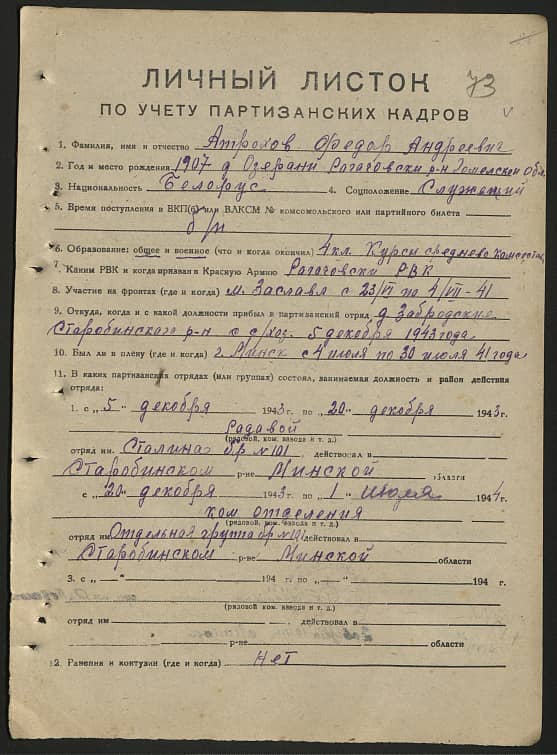 73
ЛИЧНЫЙ ЛИСТОК
ПО УЧЕТУ ПАРТИЗАНСКИХ КАДРОВ
1. Фамилия, имя и отчество Атрохов Федор Андреевич
2. Год и место рождения 1907 д Озерани Рагаговски р-н Гомелской Обл
3. Национальность Белорус 4. Соцположение Служещий
5. Время поступления в ВКП(б) или ВЛКСМ № комсомольского или партийного билета
б/п
6. Образование: общее и военное (что и когда окончил) 4 кл. Курси среднево
7. Каким РВК и когда призван в Красную Армию Рагаговски РВК
8. Участие на фронтах (где и когда) м. Заславл с 23/VI по 4/VII-41
9. Откуда, когда и с какой должности прибыл в партизанский отряд д Забродские
Старобинского р-н с с/хоз. 5 декабря 1943 года
10. Был ли в плену (где и когда) г Минск с 4 июля по 30 июля 41 года
11. В каких партизанских отрядах (или группах) состоял, занимаемая должность и район действия
отряда:
1. с „5" декабря 1943 г. по „20" декабря 1943 г.
Радавой
(рядовой, ком. взвода и т. д.)
отряд им. Сталина бр № 101 действовал в
Старобинском р-не Минской области
с „20" декабря 1943 г. по „1" Июля 1944 г.
ком отделения
(рядовой, ком. взвода и т. д.)
отряд им Отдельная група бр № 101 действовал в
Старобинском р-не Минской области
3. с „ — " 194 г. по „ — " 194 г.
(рядовой, ком. взвода и т. д.)
отряд им действовал в
р-не области
12. Ранения и контузии (где и когда) Нет